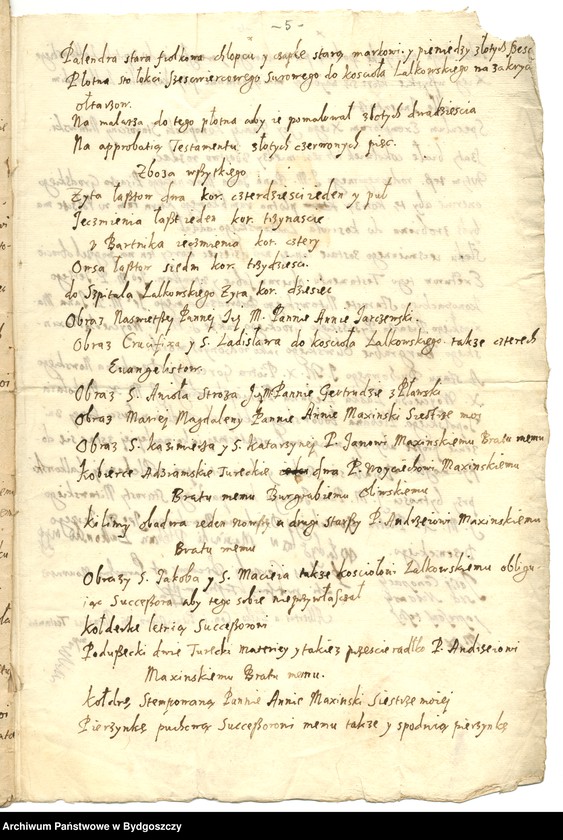 -5-
Palendra stara fiolkowa chlopcu y czapkę starą markowi y pieniędzy złotych sześć
Płotna sto łokci sześcwiercowego surowego do koscioła Lalkowskiego na zakrycie
ołtarzow.
Na malarza do tego płotna aby ie pomalował złotych dwadziescia
Na approbatią Testamentu złotych czerwonych pięć.
Zboża wszytkiego
Zyta łasztow dwa kor. czterdziesci ieden y puł
Jęczmienia łaszt ieden kor. trzynascie
v Bartnika ięczmienia kor. cztery
Owsa łasztow siedm kor. trzydziesci.
do Szpitala Lalkowskiego Zyta kor. dziesięc
Obraz Naswiętszy Panney Jey M. Pannie Annie Jarczewski.
Obraz Crucifixa y S. Ladisława do koscioła Lalkowskiego także czterech
Evangelistow.
Obraz S. Anioła Stroza Jey M Pannie Gertrudzie z Pławski
Obraz Mariey Magdaleny Pannie Annie Maxinski Siestrze moi
Obraz S. Kazimierza y S. Katarzyney P. Janowi Maxinskiemu Bratu memu
Kobierce Adziamskie Tureckie dwa P. Woyciechowi Maxinskiemu
Bratu memu Burgrabiemu
kilimy obadwa ieden nowszy a drugi starszy P. Andrzeiowi Maxinskiemu
Bratu memu
Obrazy S. Jakoba y S. Macieia także kosciołowi Lalkowskiemu obligu-
iąc Successora aby tego sobie nieprzywłaszczał
kołderkę letnią Successorowi
Poduszecki dwie Turecki materiey y takież przescieradłko P. Andrzeiowi
Maxinskiemu Bratu memu.
kołdrę Stempowaną Pannie Annie Maxinski Siestrze moiey
Pierzynkę puchową Successorowi memu także y spodnią pierzynkę
Archiwum Państwowe w Bydgoszczy